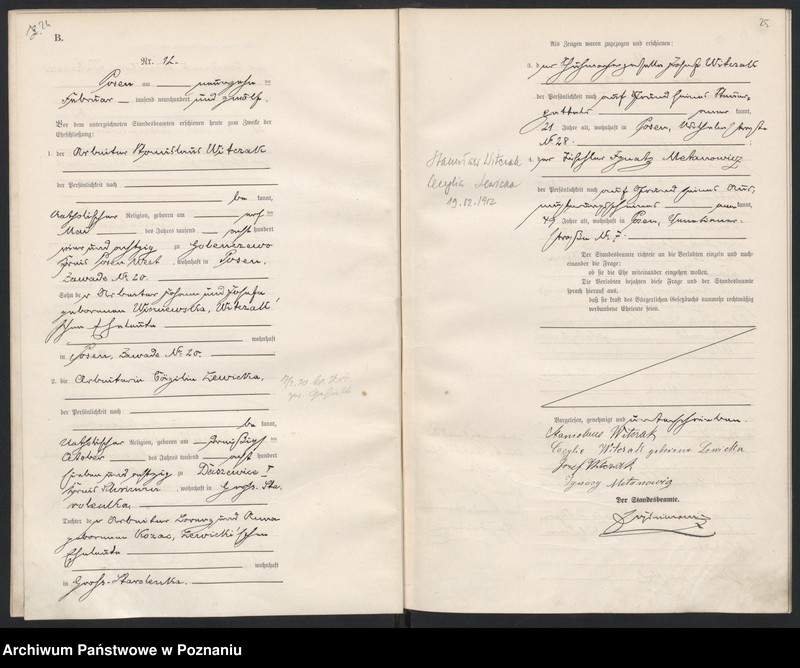 B.
Nr. 12.
Posen am neunzehn ten
Februar tausend neunhundert und zwölf.
Vor dem unterzeichneten Standesbeamten erschienen heute zum Zwecke der
Eheschließung:
1. der Arbeiter Stanislaus Witczak
der Persönlichkeit nach
be kannt,
katholischer Religion, geboren am elften
Mai des Jahres tausend acht hundert
vier und achtzig zu
Kreis Posen West, wohnhaft in Posen,
Zawade Nr. 20.
Sohn der Arbeiter Johann und Josefa
geborenen Wisniewska, Witczak'
schen Eheleute
wohnhaft
in Posen, Zawade Nr. 20.
2. die Arbeiterin Cäzilie Lewicka,
der Persönlichkeit nach
be kannt,
katholischer Religion, geboren am dreißigsten
Oktober des Jahres tausend acht hundert
sieben und achtzig zu Daszewice
Kreis Schrimm, wohnhaft in Gross-Sta-
rolenka,
Tochter der Arbeiter Lorenz und Anna
geborenen Kozac, Lewicki'schen
Eheleute
wohnhaft
in Gross-Starolenka.
25
Als Zeugen waren zugezogen und erschienen:
3. der Schuhmachergeselle Josef Witczak
der Persönlichkeit nach auf Grund seines Steuer-
zettels aner kannt,
21 Jahre alt, wohnhaft in Posen,
Nr. 28.
4. der Tischler Ignatz Metanowicz
der Persönlichkeit nach auf Grund seines Aus-
musterungsscheines aner kannt,
49 Jahre alt, wohnhaft in Posen,
straße Nr. 7.
Stanisław Witczak
Cecylia Lewicka
19.02.1912
Der Standesbeamte richtete an die Verlobten einzeln und nach-
einander die Frage:
ob sie die Ehe miteinander eingehen wollen.
Die Verlobten bejahten diese Frage und der Standesbeamte
sprach hierauf aus,
daß sie kraft des Bürgerlichen Gesetzbuchs nunmehr rechtmäßig
verbundene Eheleute seien.
Vorgelesen, genehmigt und unterschrieben.
Stanislaus Witczak
Cecylie Witczak geborene Lewicka
Jozef Witczak
Ignacy Metanowicz
Der Standesbeamte.
Archiwum Państwowe w Poznaniu